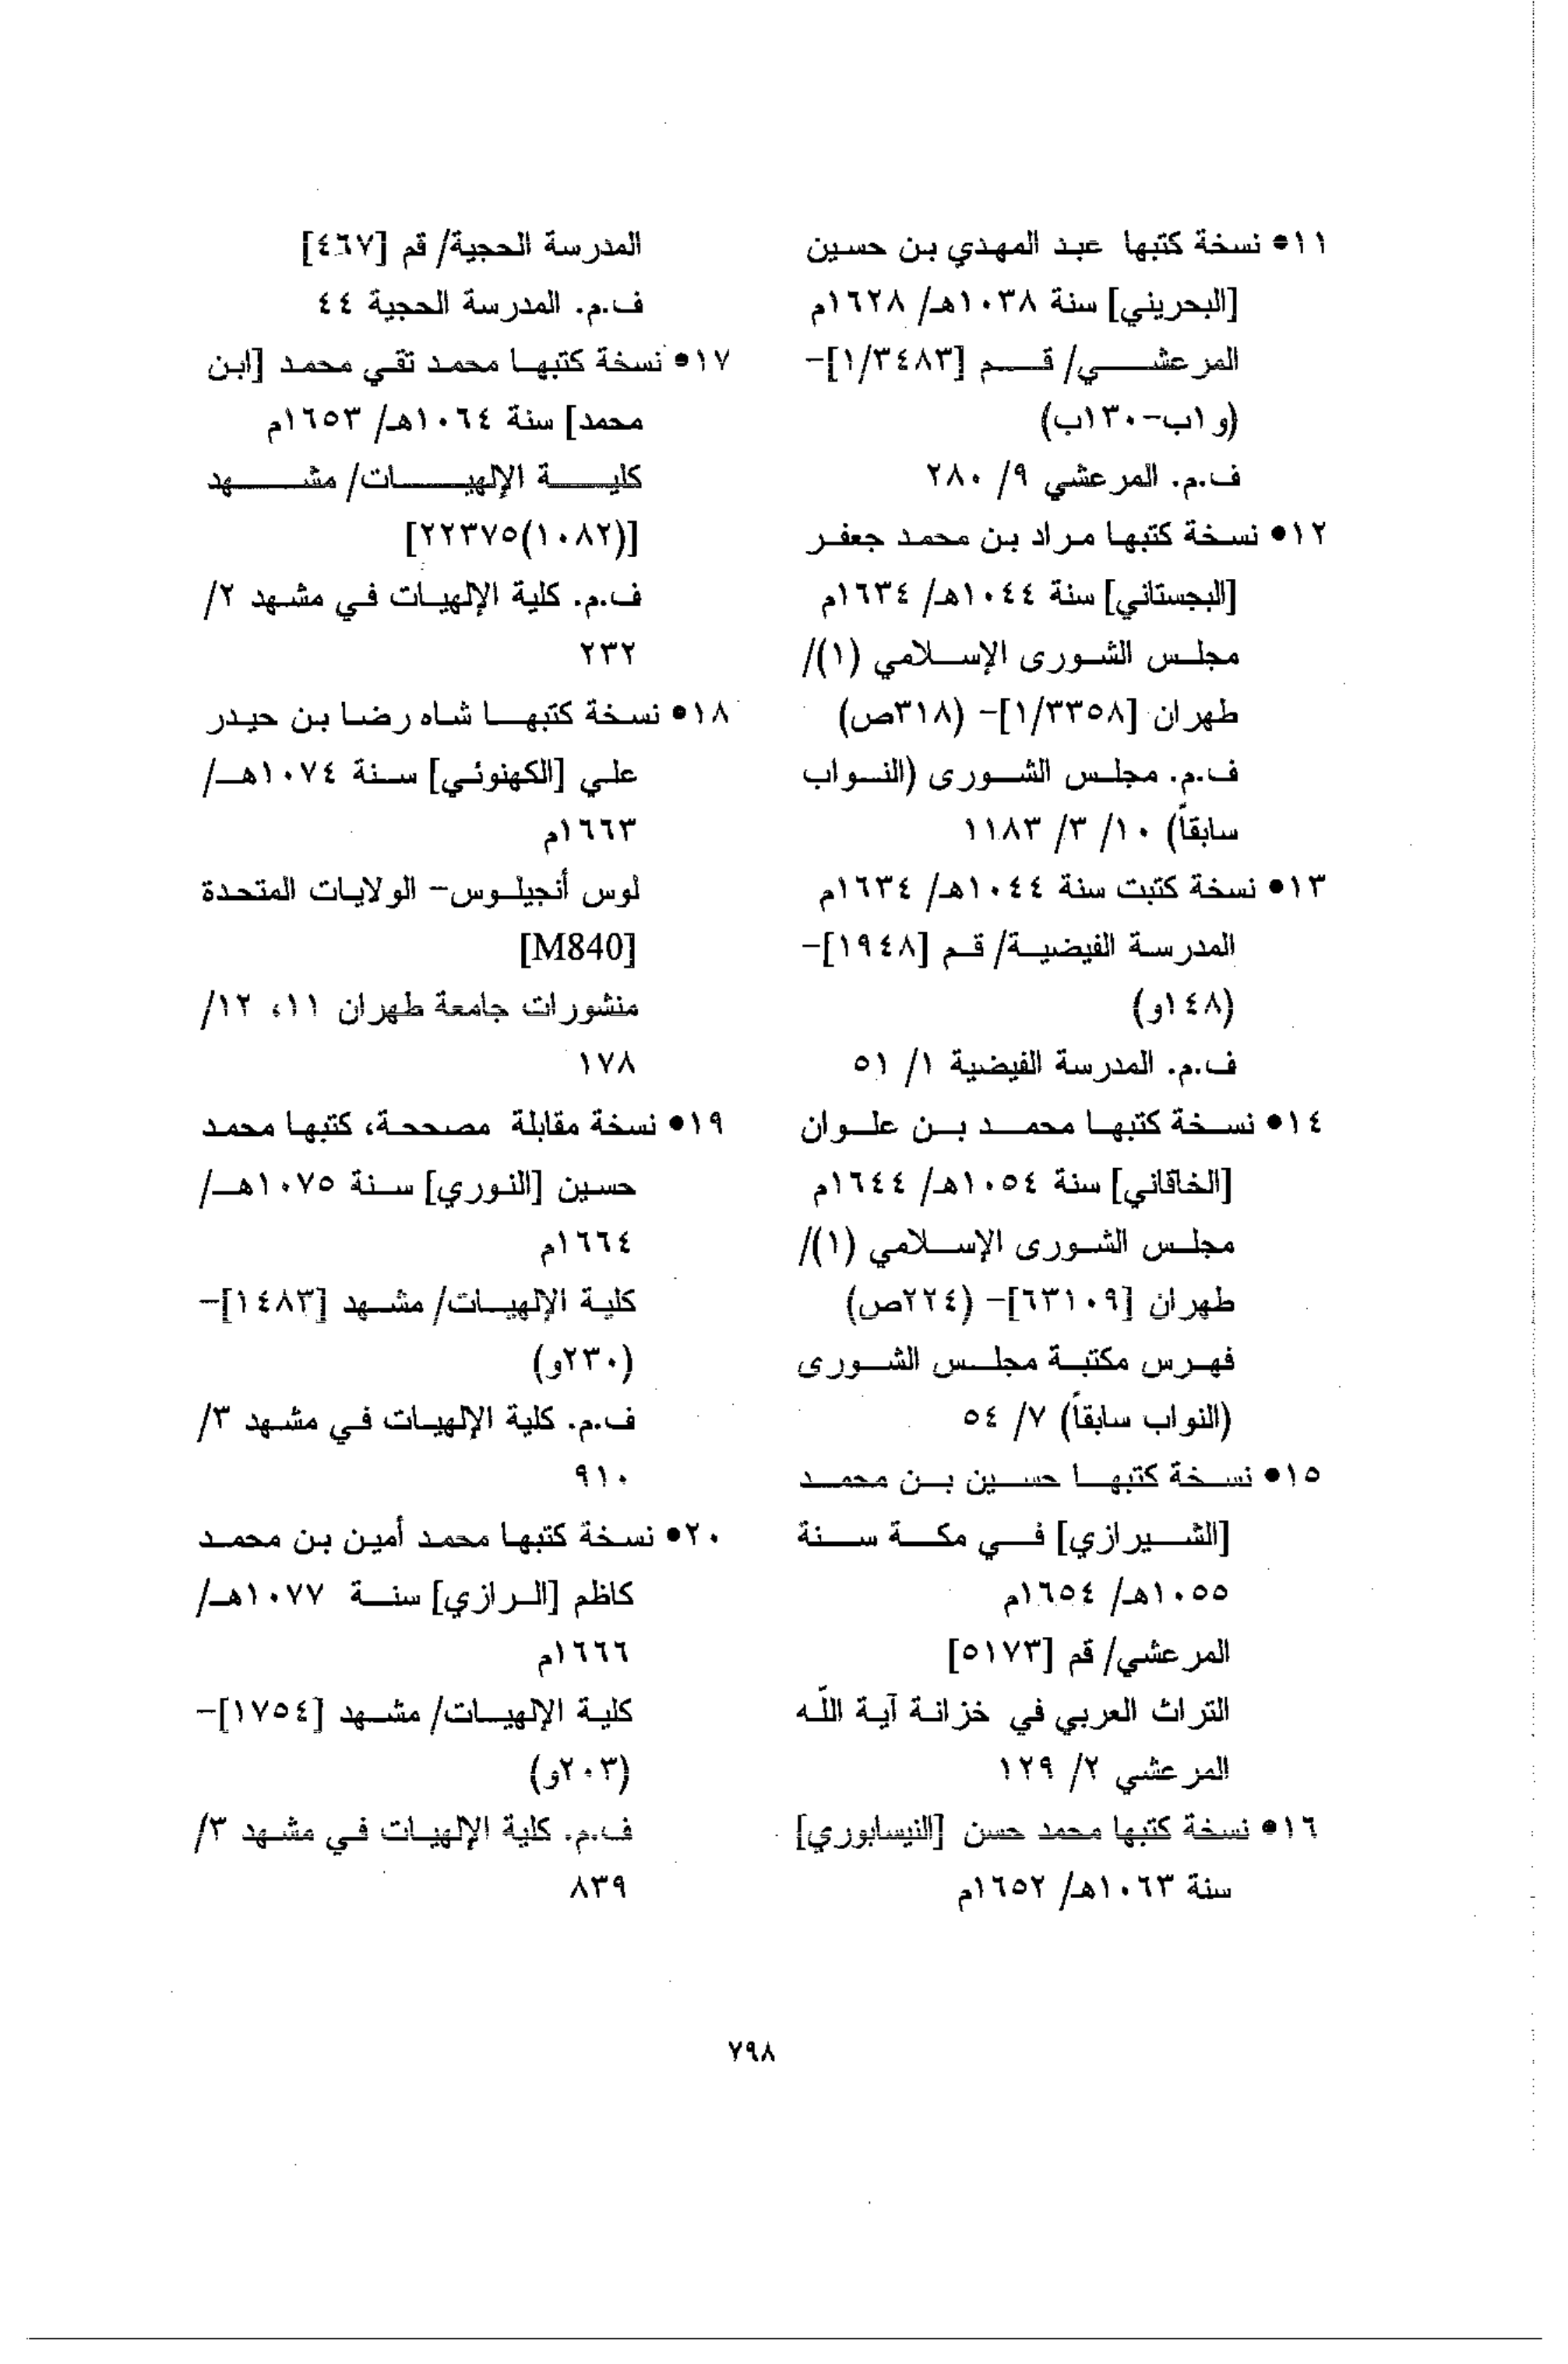 ١١• نسخة كتبها عبد المهدي بن حسين
[البحريني] سنة ١٠٣٨هـ/ ١٦٢٨م
المرعشي/ قم [١/٣٤٨٣]-
(و ١ب-١٣٠ب)
ف.م. المرعشي ٩/ ٢٨٠
١٢• نسخة كتبها مراد بن محمد جعفر
[البجستاني] سنة ١٠٤٤هـ/ ١٦٣٤م
مجلس الشورى الإسلامي (١)/
طهران [١/٣٣٥٨]- (٣١٨ص)
ف.م. مجلس الشورى (النواب
سابقاً) ١٠/ ٣/ ١١٨٣
١٣• نسخة كتبت سنة ١٠٤٤هـ/ ١٦٣٤م
المدرسة الفيضية/ قم [١٩٤٨]-
(١٤٨و)
ف.م. المدرسة الفيضية ١/ ٥١
١٤• نسخة كتبها محمد بن علوان
[الخاقاني] سنة ١٠٥٤هـ/ ١٦٤٤م
مجلس الشورى الإسلامي (١)/
طهران [٦٣١٠٩]- (٢٢٤ص)
فهرس مكتبة مجلس الشورى
(النواب سابقاً) ٧/ ٥٤
١٥• نسخة كتبها حسين بن محمد
[الشيرازي] في مكة سنة
١٠٥٥هـ/ ١٦٥٤م
المرعشي/ قم [٥١٧٣]
التراث العربي في خزانة آية اللّه
المرعشي ٢/ ١٢٩
١٦• نسخة كتبها محمد حسن [النيسابوري]
سنة ١٠٦٣هـ/ ١٦٥٢م
المدرسة الحجية/ قم [٤٦٧]
ف.م. المدرسة الحجية ٤٤
١٧• نسخة كتبها محمد تقي محمد [ابن
محمد] سنة ١٠٦٤هـ/ ١٦٥٣م
كلية الإلهيات/ مشهد
[(١٠٨٢)٢٢٣٧٥]
ف.م. كلية الإلهيات في مشهد ٢/
٢٣٢
١٨• نسخة كتبها شاه رضا بن حيدر
علي [الكهنوئي] سنة ١٠٧٤هـ/
١٦٦٣م
لوس أنجيلوس- الولايات المتحدة
[M840]
منشورات جامعة طهران ١١، ١٢/
١٧٨
١٩• نسخة مقابلة مصححة، كتبها محمد
حسين [النوري] سنة ١٠٧٥هـ/
١٦٦٤م
كلية الإلهيات/ مشهد [١٤٨٣]-
(٢٣٠و)
ف.م. كلية الإلهيات في مشهد ٣/
٩١٠
٢٠• نسخة كتبها محمد أمين بن محمد
كاظم [الرازي] سنة ١٠٧٧هـ/
١٦٦٦م
كلية الإلهيات/ مشهد [١٧٥٤]-
(٢٠٣و)
ف.م. كلية الإلهيات في مشهد ٣/
٨٣٩
٧٩٨